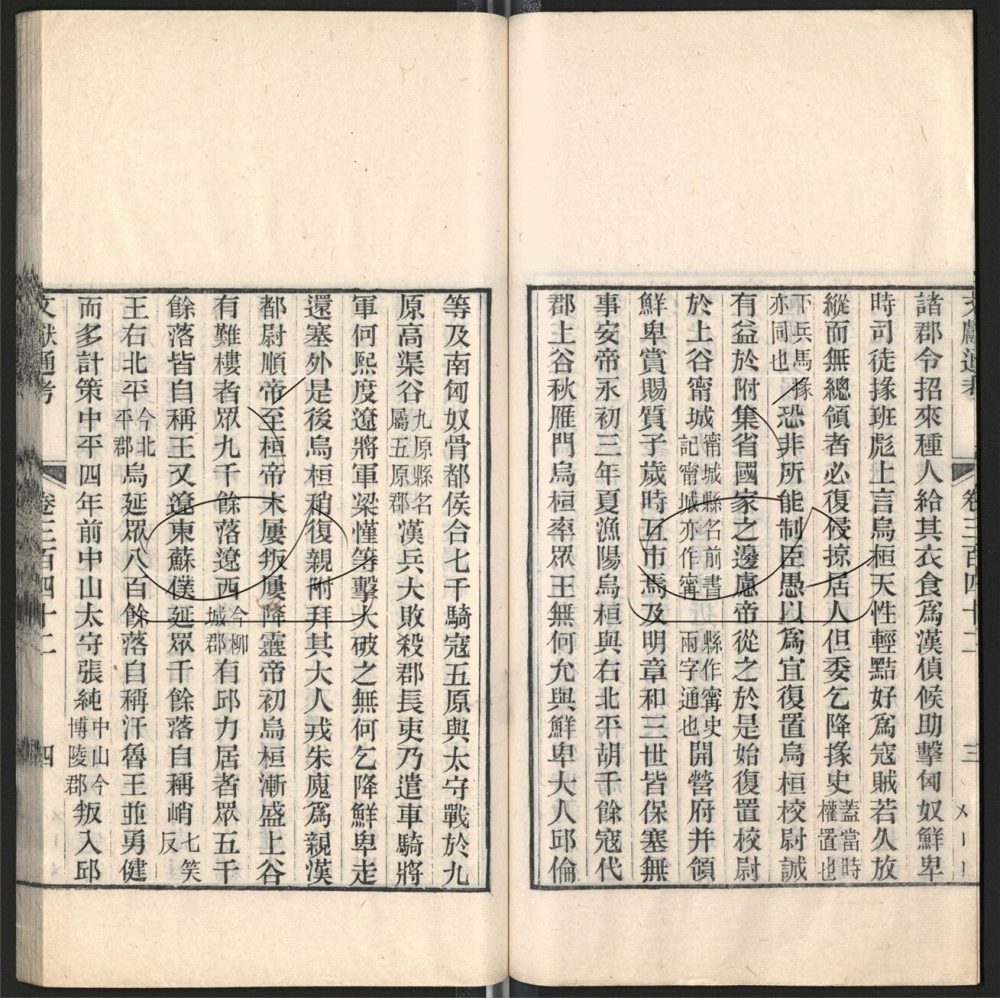 文獻通考 卷三百四十二 三
諸郡令招來種人給其衣食爲漢偵候助擊匈奴鮮卑
時司徒掾班彪上言烏桓天性輕黠好爲寇賊若久放
縱而無總領者必復侵掠居人但委乞降掾史蓋當時權置也
下兵馬掾亦同也恐非所能制臣愚以爲宜復置烏桓校尉誠
有益於附集省國家之邊慮帝從之於是始復置校尉
於上谷甯城甯城縣名前書縣作甯史記甯城亦作寗兩字通也開營府并領
鮮卑賞賜質子歲時互市焉及明章和三世皆保塞無
事安帝永初三年夏漁陽烏桓與右北平胡千餘寇代
郡上谷秋雁門烏桓率眾王無何允與鮮卑大人邱倫
等及南匈奴骨都侯合七千騎寇五原與太守戰於九
原高渠谷九原縣名屬五原郡漢兵大敗殺郡長吏乃遣車騎將
軍何熙度遼將軍梁慬等擊大破之無何乞降鮮卑走
還塞外是後烏桓稍復親附拜其大人戎朱廆爲親漢
都尉順帝至桓帝末屢叛屢降靈帝初烏桓漸盛上谷
有難樓者眾九千餘落遼西今柳城郡有邱力居者眾五千
餘落皆自稱王又遼東蘇僕延眾千餘落自稱峭七笑反
王右北平今北平郡烏延眾八百餘落自稱汗魯王並勇健
而多計策中平四年前中山太守張純中山今博陵郡叛入邱
文獻通考 卷三百四十二 四